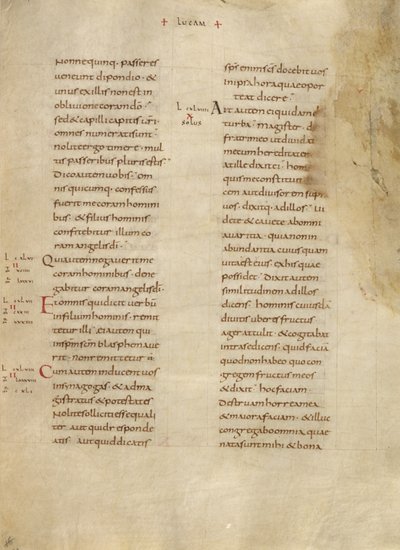 ✝ LUCAM ✝
Nonne quinq. passeres
veneunt dipondio · &
unus ex illis non est in
oblivione coram dō ·
sed & capilli capitis ūri
omnes numerati sunt ·
nolite ergo timere · mul
tis passeribus pluris estis
Dico autem vobis · om
nis quicumq. confessus
fuerit me coram homini
bus · & filius hominis
confitebitur illum co
ram angelis dī ·
Qui autem negaverit me
coram hominibus · dene
gabitur coram angelis dī ·
Et omnis qui dicit verbū
in filium hominis · remit
tetur illi · ei autem qui
in spm scm blasphemave
rit · non remittetur ·
Cum autem inducent vos
in synagogas · & ad ma
gistratus & potestates
Nolite solliciti esse quali
ter aut quid responde
atis · aut quid dicatis
sps enim scs docebit vos
in ipsa hora quae opor
teat dicere ·
Ait autem ei quidam de
turba · magister · dic
fratri meo ut dividat
mecum hereditatem
at ille dixit ei · homo
quis me constituit iudi
cem aut divisorem supra
vos · dixitq. ad illos · vi
dete & cavete ab omni
avaritia · quia non in
abundantia cuius quam
vita est eius ex his quae
possidet · Dixit autem
similitudinem ad illos
dicens · hominis cuiusdā
divitis uberes fructus
ager attulit · & cogitabat
intra se dicens · quid faciā
quod non habeo quo con
gregem fructus meos
& dixit · hoc faciam ·
Destruam horrea mea
& maiora faciam · & illuc
congregabo omnia quae
nata sunt mihi & bona
L cxlviiii
solus